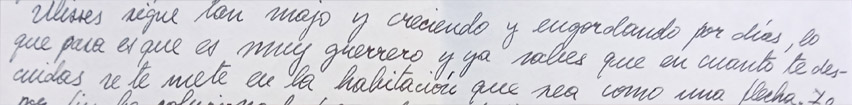 Ulises sigue tan majo y creciendo y engordando por días, lo
que pasa es que es muy guerrero y ya sabes que en cuanto te des-
cuidas se te mete en la habitación que sea como una flecha. Yo
por fin